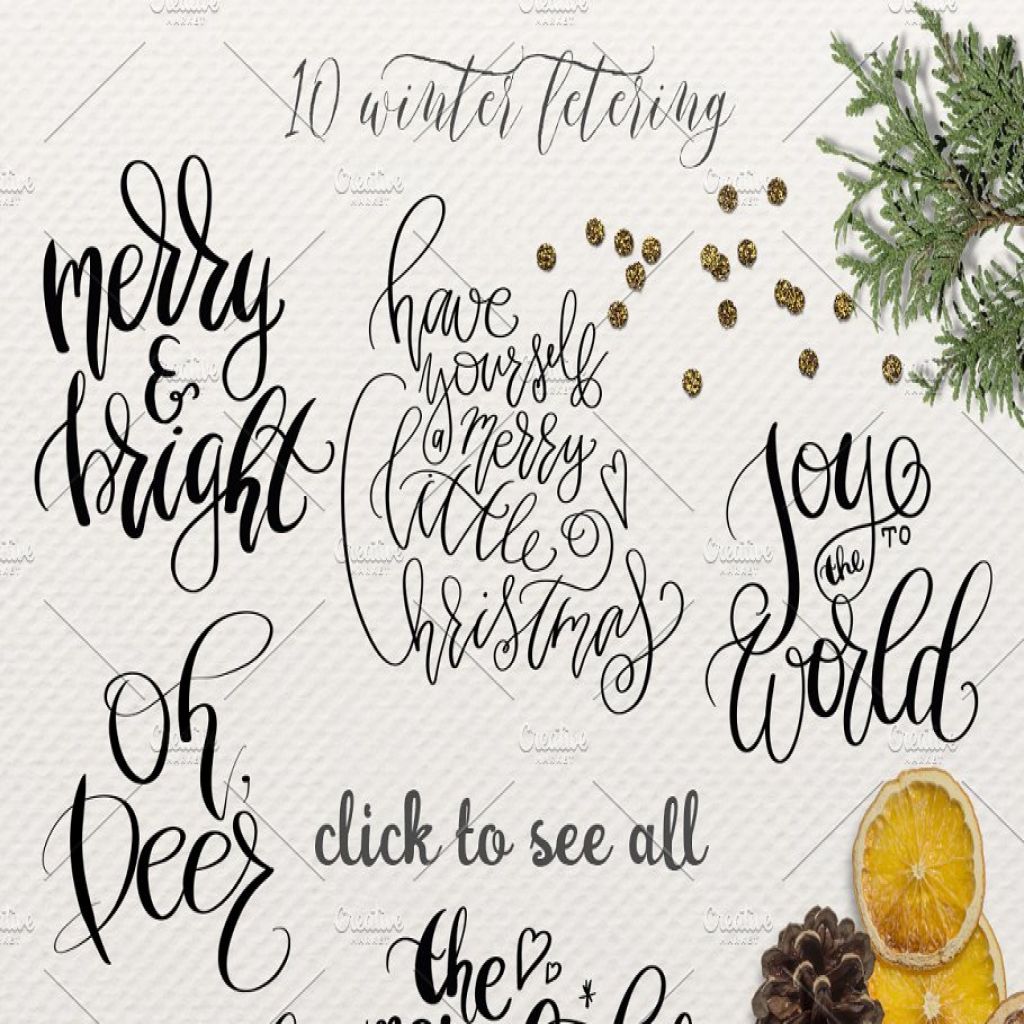 10 winter letering
merry
&
bright
have
yourself
a merry
little
christmas
Joy TO
the
World
Oh,
Deer
click to see all
the
Creative
MARKET